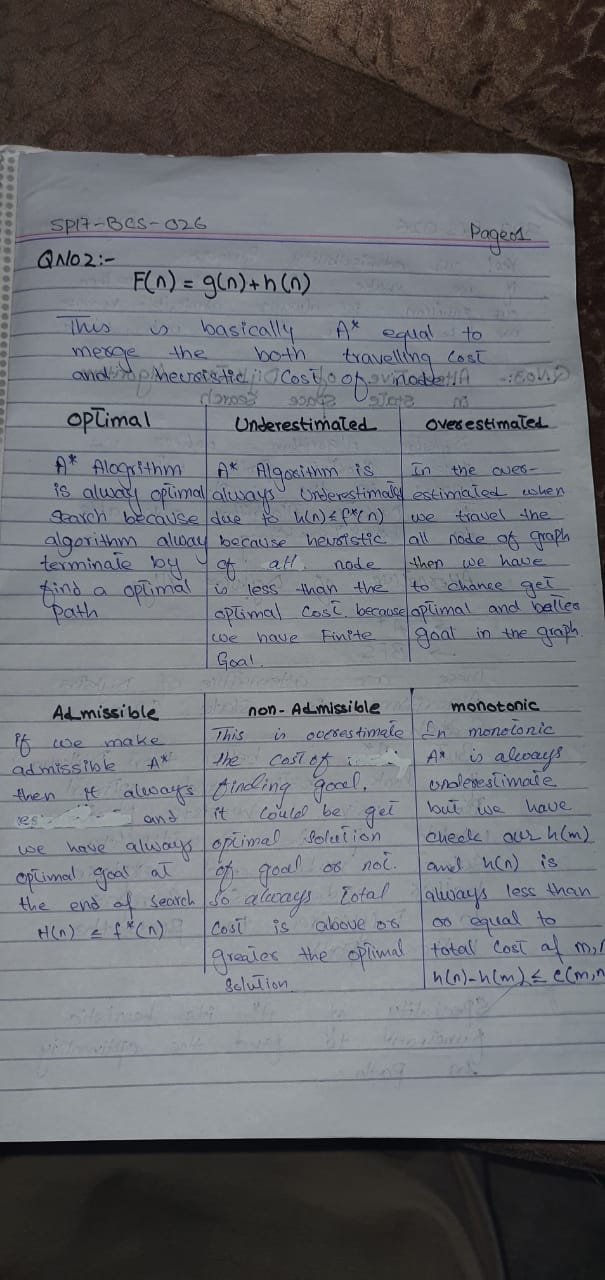 SP17-BCS-026
Page01
QNO2:-
F(n) = g(n)+h(n)
This is basically A* equal to
merge the both travelling cost
and heuroistic Cost of node
optimal
A* Alogrithm
is alway optimal
search because
algorithm alway
terminate by
find a optimal
path
Underestimated
A* Algorithm is
always Underestimated
due to h(n)≤f*(n)
because heuristic
of all node
is less than the
optimal cost because
we have Finite
Goal.
overestimated
In the over-
estimated when
we travel the
all node of graph
then we have
to chance get
optimal and
goal in the graph.
Admissible
If we make
admissible A*
then it always
and
we have always
optimal goal at
the end of search
H(n) ≤ f*(n)
non-Admissible
This is overestimate
the cost of
finding goal.
it could be get
optimal solution
of goal or not.
so always total
cost is above or
greater the optimal
solution.
monotonic
In monotonic
A* is always
underestimate
but we have
check our h(m)
and h(n) is
always less than
or equal to
total cost of m,n
h(n)-h(m) ≤ c(m,n